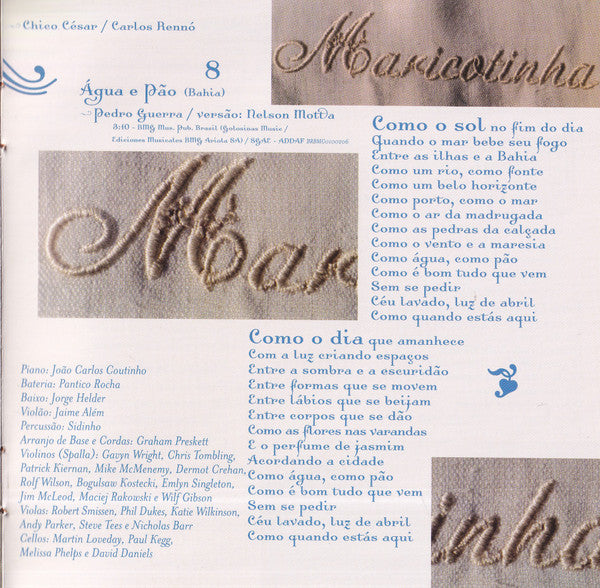 Chico César / Carlos Rennó
Maricotinha
8
Água e Pão (Bahia)
Pedro Guerra / versão: Nelson Motta
3:10 - BMG Mus. Pub. Brasil (Gotosinas Music /
Ediciones Musicales BMG Ariola SA) / SGAE - ADDAF
Como o sol no fim do dia
Quando o mar bebe seu fogo
Entre as ilhas e a Bahia
Como um rio, como fonte
Como um belo horizonte
Como porto, como o mar
Como o ar da madrugada
Como as pedras da calçada
Como o vento e a maresia
Como água, como pão
Como é bom tudo que vem
Sem se pedir
Céu lavado, luz de abril
Como quando estás aqui
Mar
Como o dia que amanhece
Com a luz criando espaços
Entre a sombra e a escuridão
Entre formas que se movem
Entre lábios que se beijam
Entre corpos que se dão
Como as flores nas varandas
E o perfume de jasmim
Acordando a cidade
Como água, como pão
Como é bom tudo que vem
Sem se pedir
Céu lavado, luz de abril
Como quando estás aqui
Piano: João Carlos Coutinho
Bateria: Pantico Rocha
Baixo: Jorge Helder
Violão: Jaime Além
Percussão: Sidinho
Arranjo de Base e Cordas: Graham Preskett
Violinos (Spalla): Gavyn Wright, Chris Tombling,
Patrick Kiernan, Mike McMenemy, Dermot Crehan,
Rolf Wilson, Bogulsaw Kostecki, Emlyn Singleton,
Jim McLeod, Maciej Rakowski e Wilf Gibson
Violas: Robert Smissen, Phil Dukes, Katie Wilkinson,
Andy Parker, Steve Tees e Nicholas Barr
Cellos: Martin Loveday, Paul Kegg,
Melissa Phelps e David Daniels
inha